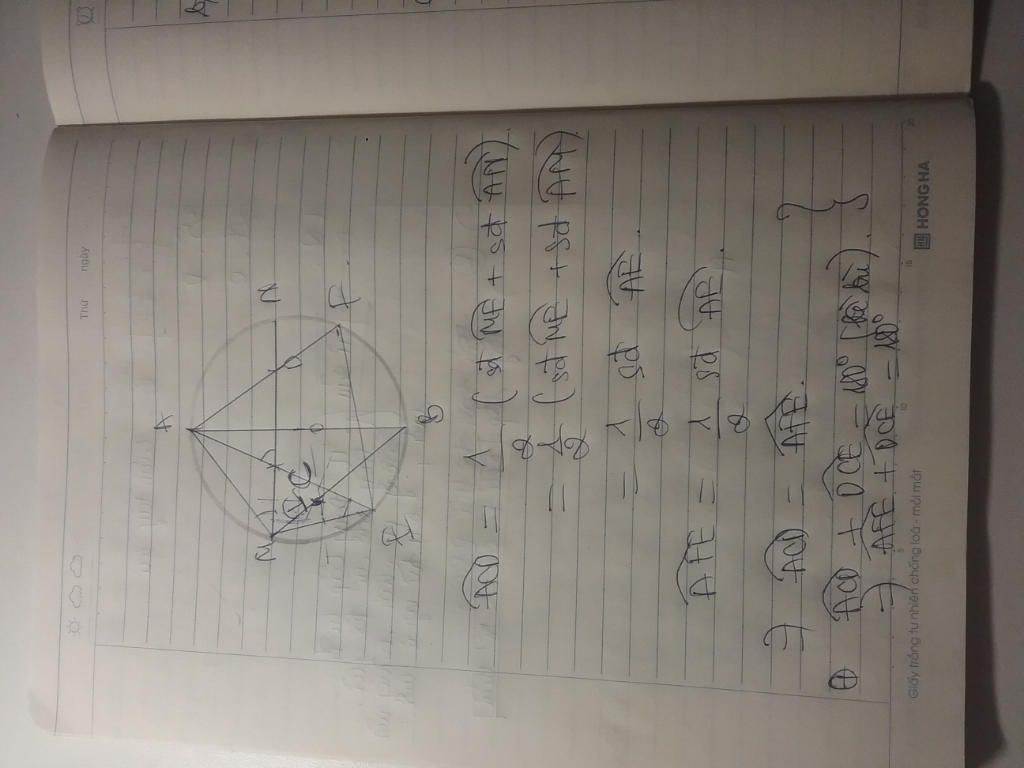 Thứ ngày
A
M
N
F
O
B
E
I
H
C
D
ACD = 1/2 (sđ ME + sđ AN)
= 1/2 (sđ ME + sđ AM)
= 1/2 sđ AE.
AFE = 1/2 sđ AE
=) ACD = AFE.
ACD + DCE = 180° (kề bù).
=) AFE + DCE = 180°
Giấy trắng tự nhiên chống loá - mỏi mắt
HONG HA